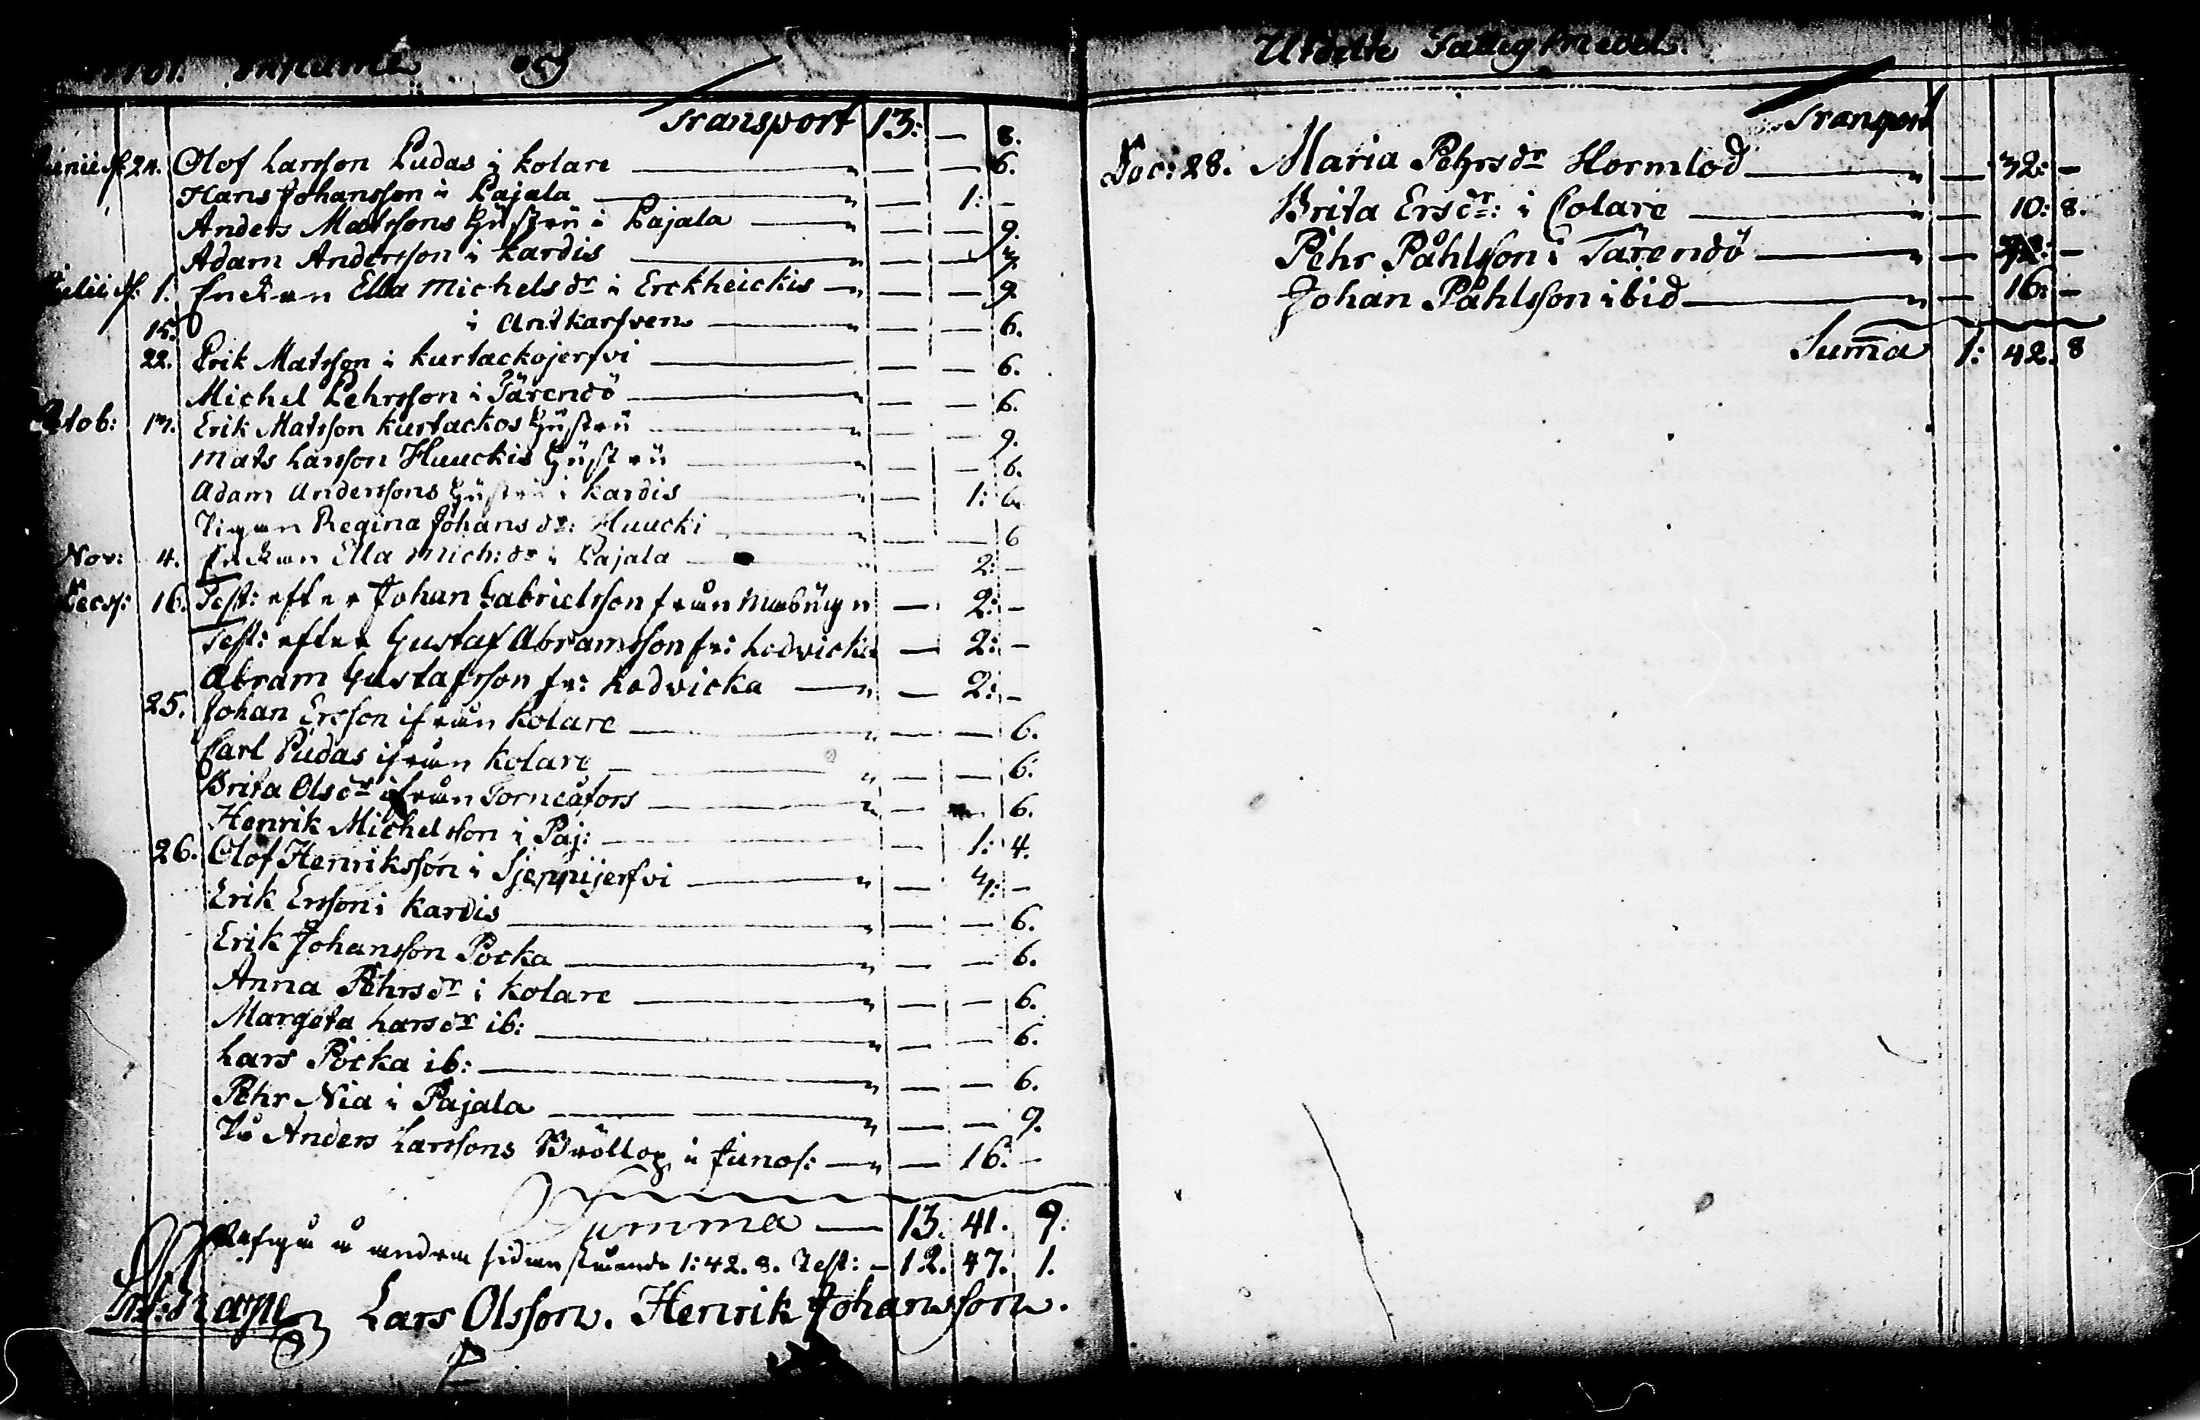 Utdelte Fattigmedel.
Transport 13: — 8.
Junii d. 24. Olof Larsson Pudas i Kolare " — — 6.
Hans Johansson i Pajala " — 1: —
Anders Matssons Hustru i Pajala " — — 9.
Adam Andersson i Kardis " — —
Julii d. 1. Enckan Ella Michels dr i Erckheickis " — — 9.
15. i Antkarfven — — 6.
22. Erik Matsson i Kurtackojerfvi — — 6.
Michel Pehrsson i Tärendö " — — 6.
Octob: 17. Erik Matsson Kurtackos Hustru " — — 9.
Mats Larsson Huuckis Hustru " — — 6.
Adam Anderssons Hustru i Kardis " — 1: 6.
Pigan Regina Johans dr: Huucki " — — 6
Nov: 4. Enckan Ella Mich: dr i Pajala " — 2: —
Decs: 16. Test: efter Johan Gabrielsson från — 2: —
Test: efter Gustaf Abramsson fr: Lodvicka — 2: —
Abram Gustafsson fr: Lodvicka " — 2: —
25. Johan Ersson ifrån Kolare " — — 6.
Carl Pudas ifrån Kolare " — — 6.
Brita Ols dr ifrån Torneåfors " — 6.
Henrik Michelsson i Paj: " — 1: 4.
26. Olof Henriksson i Sjeppijerfvi " — 4: —
Erik Ersson i Kardis " — — 6.
Erik Johansson Pocka " — — 6.
Anna Pehrs dr i Kolare " — — 6.
Margeta Lars dr ib: " — — 6.
Lars Pocka ib: " — — 6.
Pehr Nia i Pajala " — — 9.
På Anders Larssons Bröllop i Junos: " — 16: —
Summa — 13. 41. 9.
å andra sidan stående 1: 42. 8. Rest: — 12. 47. 1.
Lars Olsson. Henrik Johansson.
Transport
Dec: 28. Maria Pehrs dr Hormlod " — 32: —
Brita Ers dr: i Colare " — 10: 8.
Pehr Påhlsson i Tärendö " — —
Johan Påhlsson ibid " — 16: —
Summa 1: 42. 8